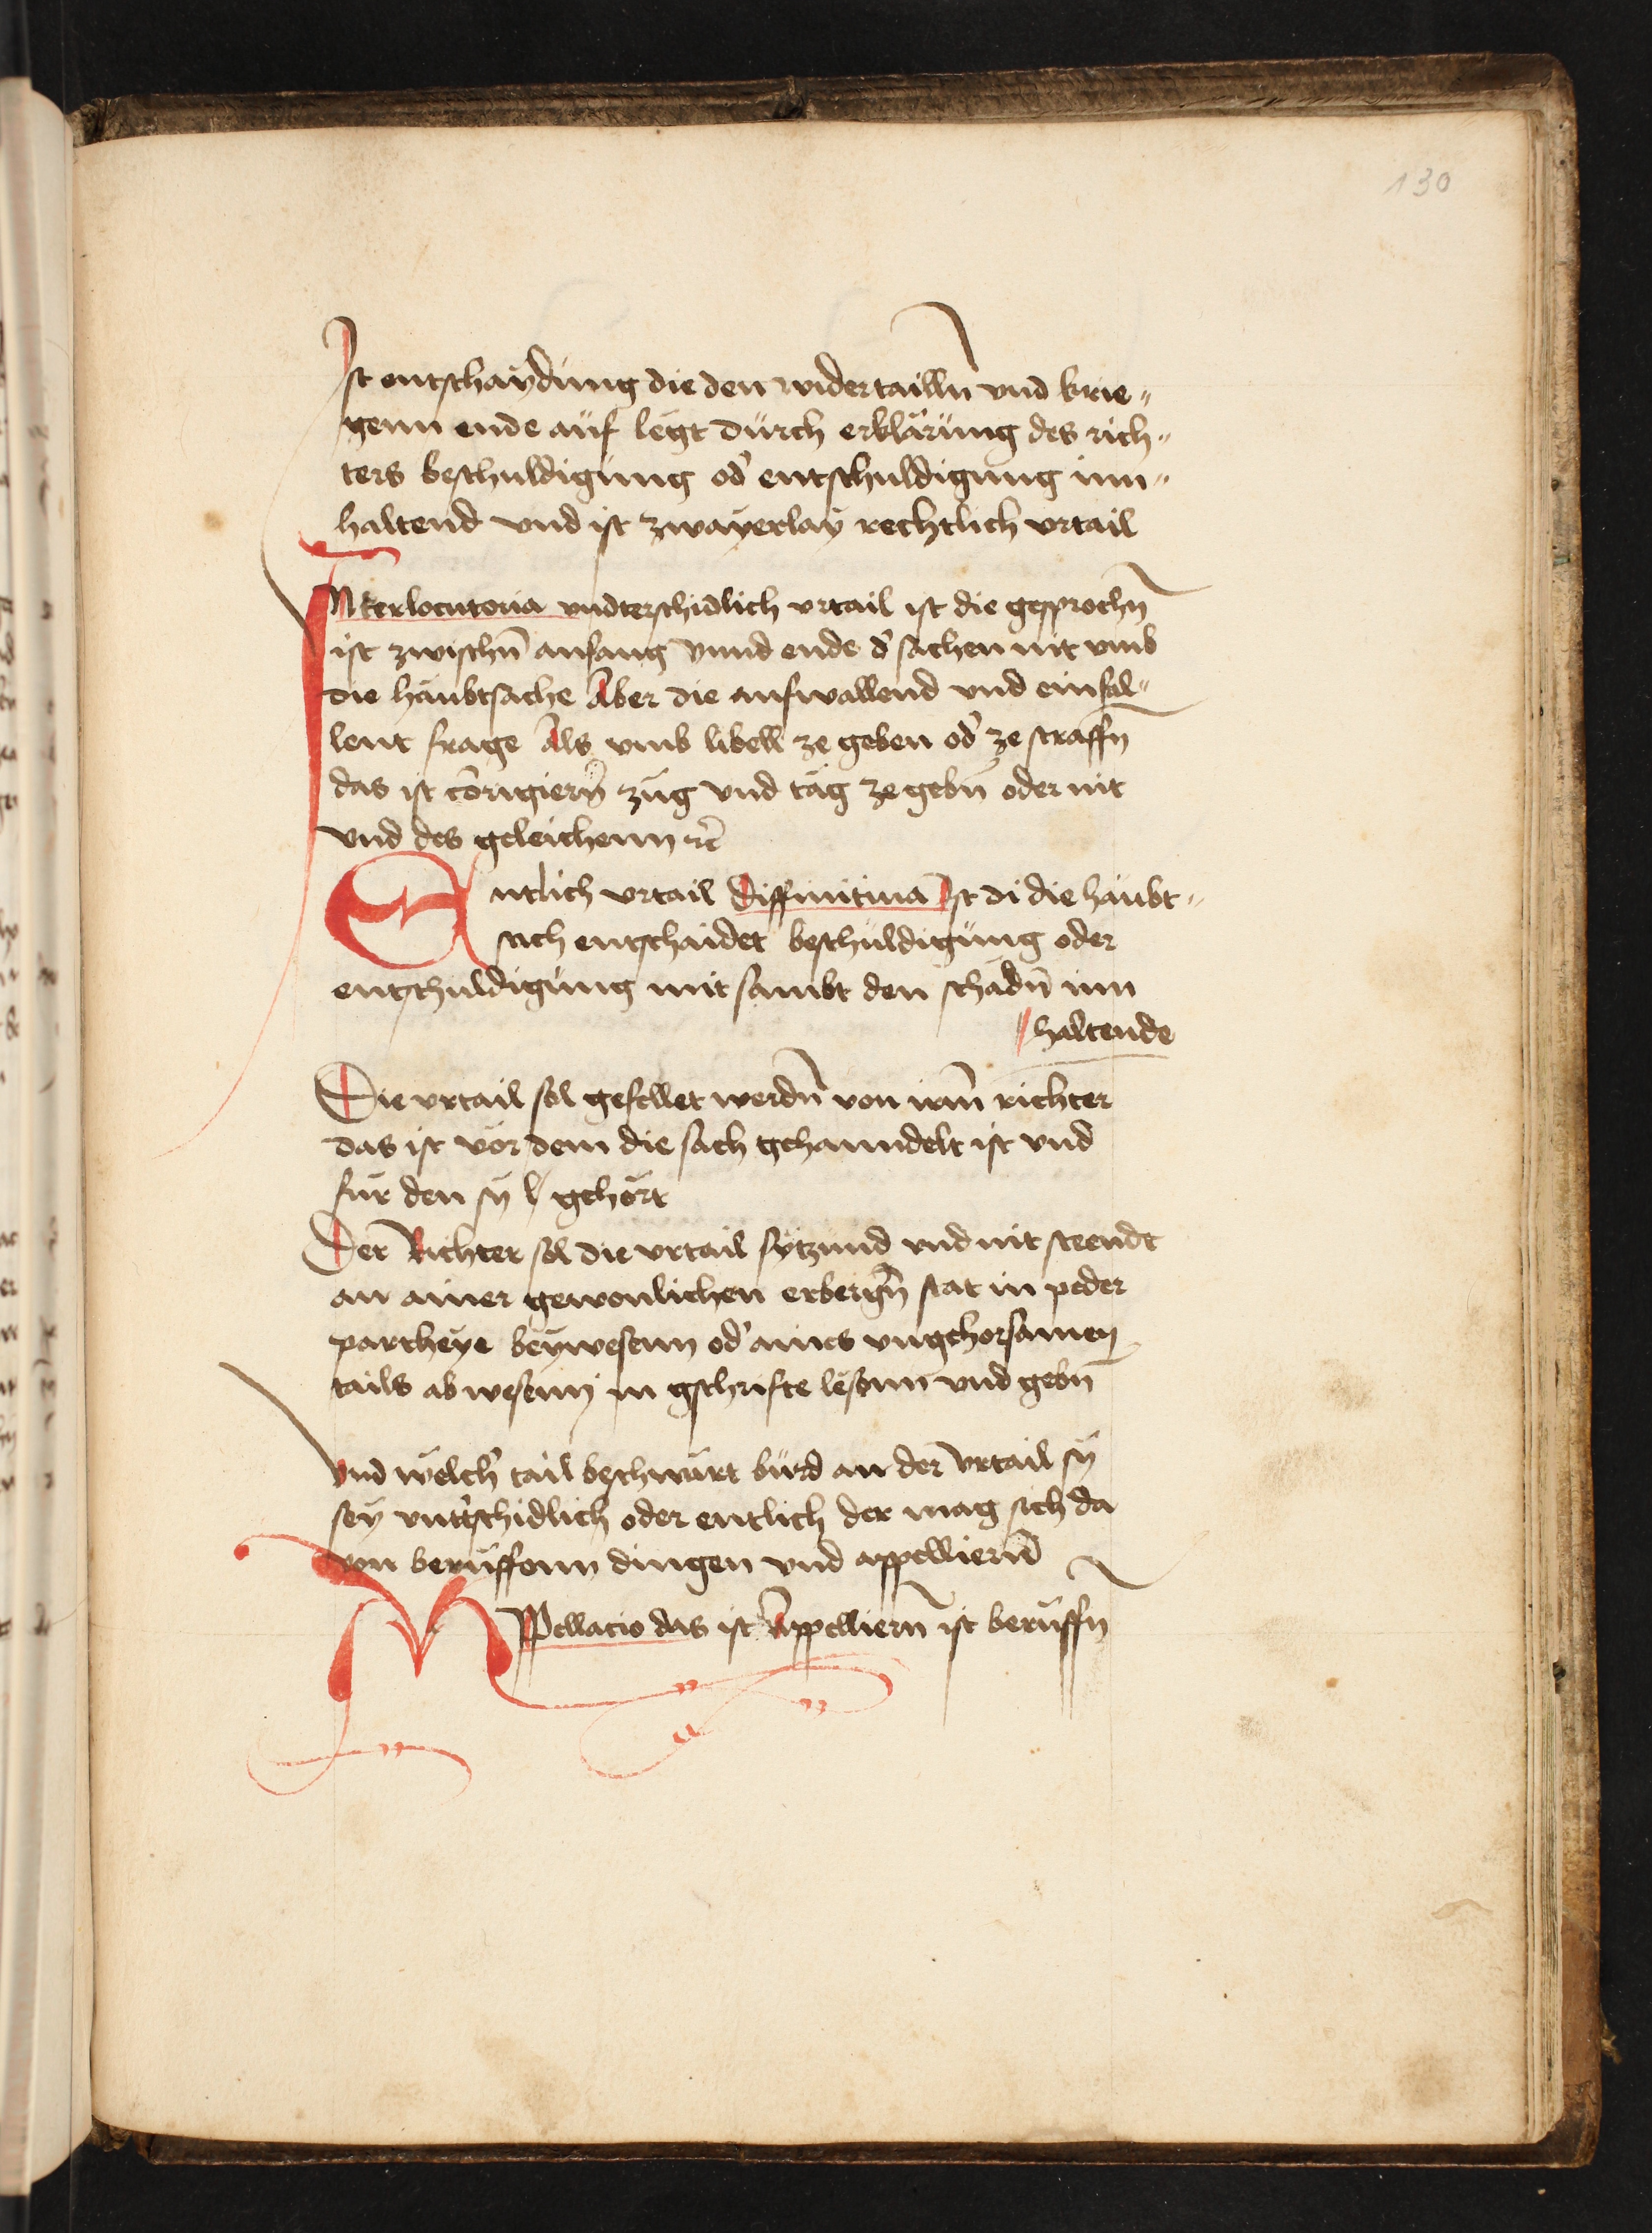 130
Ist entschaÿdúng die den widertailln̄ vnd krie„
genn ende aúf legt dúrch erklärúng des rich„
ters beschuldigúng od' entschúldigúng inn„
haltend vnd ist zwaÿerlaÿ rechtlich vrtail
INterlocutoria vndterschidlich vrtail ist die gesprochn̄
ist zwischn̄ anfang vnnd ende d' sachen nit vmb
die haúbtsache Aber die aufwallend vnd einfal„
lent frage Als vmb libell ze geben od' ze straffn̄
das ist cōrigiern̄ zúg vnd täg ze gebn̄ oder nit
vnd des geleichenn ⁊c̄
Entlich vrtail diffinitiua Ist di die haúbt„
sach entschaidet beschúldigúng oder
entschuldigúng mit sambt den schädn̄ inn
// haltende
Die vrtail sol gefellet werdn̄ von irm̄ richter
das ist vor dem die sach gehanndelt ist vnd
für den sÿ gehört
Der Richter sol die vrtail sÿtzúnd vnd nit steendt
an ainer gewonlichen erbergn̄ stat in peder
partheÿe beÿwesenn od' aines vngehorsamen
tails abwesenn in gschrifte lesenn vnd gebn̄
Vnd welch' tail beschwärt würd an der vrtail sÿ
seÿ vntt'schidlich oder entlich der mag sich da
von berúffenn dingen vnd appelliern̄
APpellacio das ist Appelliern̄ ist berúffn̄